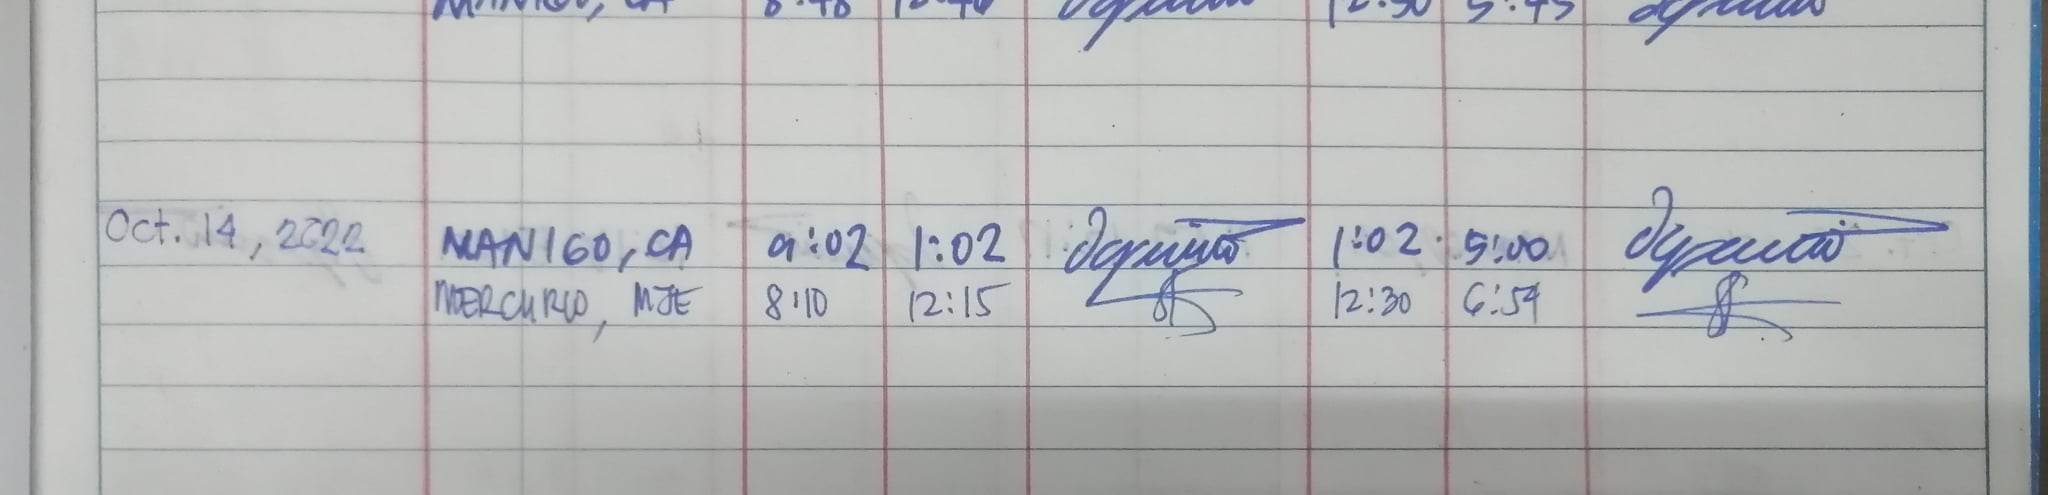 MANIGO, CA
Oct. 14, 2022 MANIGO, CA 9:02 1:02 1:02 5:00
MERCURIO, MJE 8:10 12:15 12:30 6:54